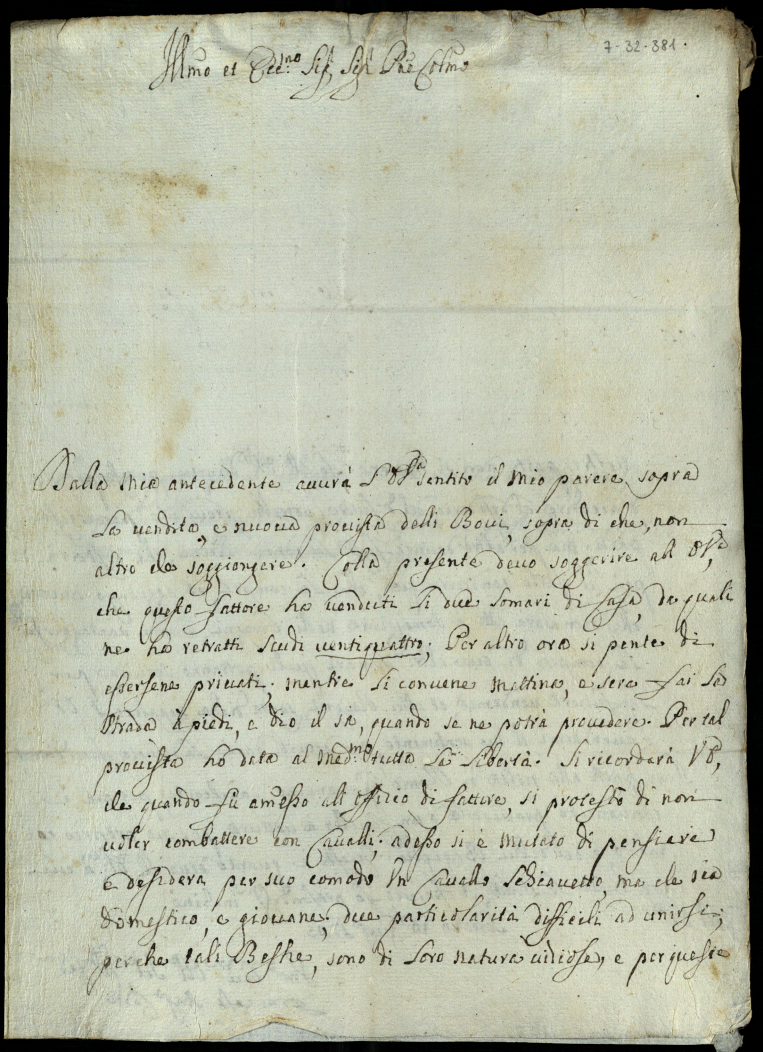 7-32-381.
Illmo et Ecc.mo Sig. Sig. Pne Colmo
Dalla mia antecedente avverà sentito il mio parere sopra
la vendita, e nuova provista delli Bovi, sopra di che, non
altro che soggiongere. Colla presente devo soggerire all
che questo fattore ha venduti li due somari di Casa, da quali
ne ha retratti scudi ventiquattro; Per altro ora si pente di
essersene privati, mentre li convene mattina, e sera far la
strada à piedi, e dio il sà, quando se ne potrà provedere. Per tal
provista hò data al med.mo tutta la libertà. Si ricordarà
che quando fù amesso all officio di fattore, si protestò di non
voler combattere con Cavalli; adesso si è mutato di pensiere
e desidera per suo comodo un Cavallo Schiavetto, ma che sia
domestico, e giovane, due particolarità difficili ad unirsi,
perche tali Bestie, sono di loro natura vidiose, e per queste